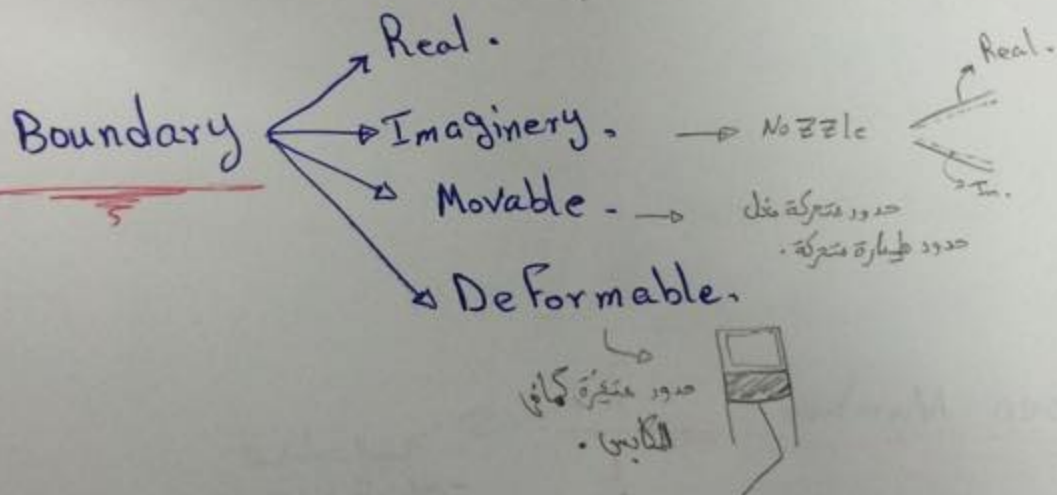 Real.
Boundary
Imaginery. Nozzle
Real.
Im.
Movable. حدود متحركة مثل
حدود طيارة متحركة.
DeFormable.
حدود متغيرة كما في
المكابس.